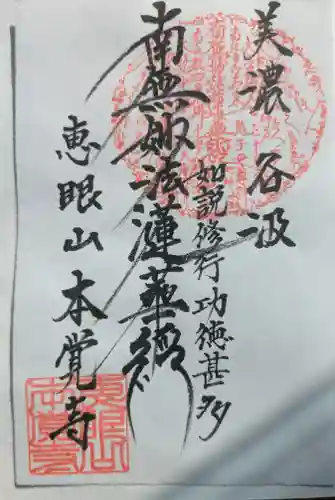 美濃 谷汲
如説修行功徳甚多
南無妙法蓮華經
恵眼山本覚寺